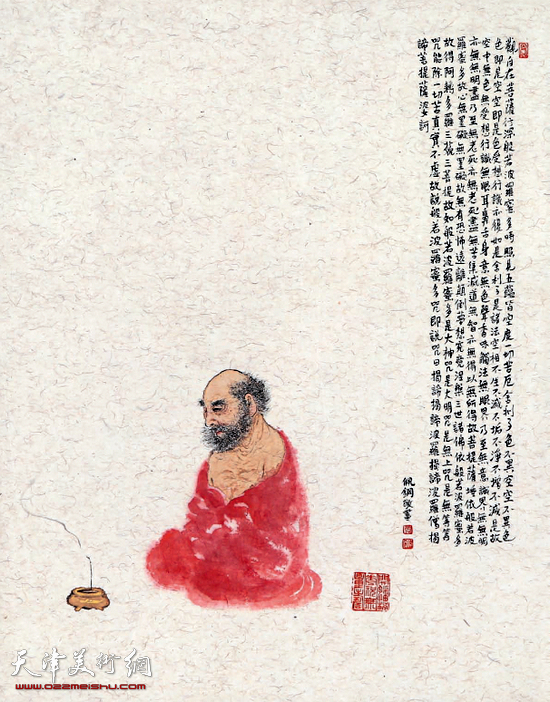 觀自在菩薩行深般若波羅蜜多時照見五蘊皆空度一切苦厄舍利子色不異空空不異色
色即是空空即是色受想行識亦復如是舍利子是諸法空相不生不滅不垢不淨不增不減是故
空中無色無受想行識無眼耳鼻舌身意無色聲香味觸法無眼界乃至無意識界無無明
亦無無明盡乃至無老死亦無老死盡無苦集滅道無智亦無得以無所得故菩提薩埵依般若波
羅蜜多故心無罣礙無罣礙故無有恐怖遠離顛倒夢想究竟涅槃三世諸佛依般若波羅蜜多
故得阿耨多羅三藐三菩提故知般若波羅蜜多是大神咒是大明咒是無上咒是無等等
咒能除一切苦真實不虛故說般若波羅蜜多咒即說咒曰揭諦揭諦波羅揭諦波羅僧揭
諦菩提薩婆訶
佩鋼敬筆
天津美術網
www.022meishu.com